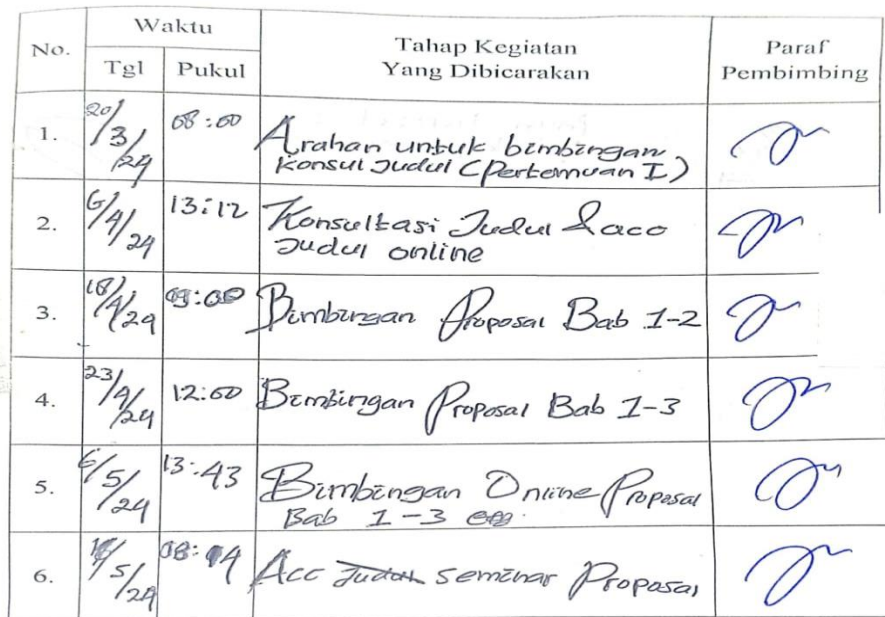 No. Waktu Tahap Kegiatan Yang Dibicarakan Paraf Pembimbing
Tgl Pukul
1. 20/3/24 08:00 Arahan untuk bimbingan
Konsul Judul (Pertemuan I)
2. 6/4/24 13:12 Konsultasi Judul & acc
Judul online
3. 18/4/24 09:00 Bimbingan Proposal Bab 1-2
4. 23/4/24 12:00 Bimbingan Proposal Bab 1-3
5. 6/5/24 13:43 Bimbingan Online Proposal
Bab 1-3
6. /5/24 Acc seminar Proposal